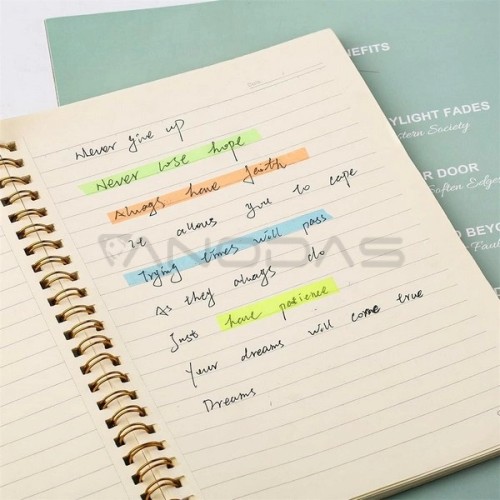 Never give up
Never lose hope
Always have faith
It allows you to cope
Trying times will pass
As they always do
Just have patience
Your dreams will come true
Dreams
ANODAS
Date
BENEFITS
YLIGHT FADES
stern Society
R DOOR
Soften Edges
D BEYO